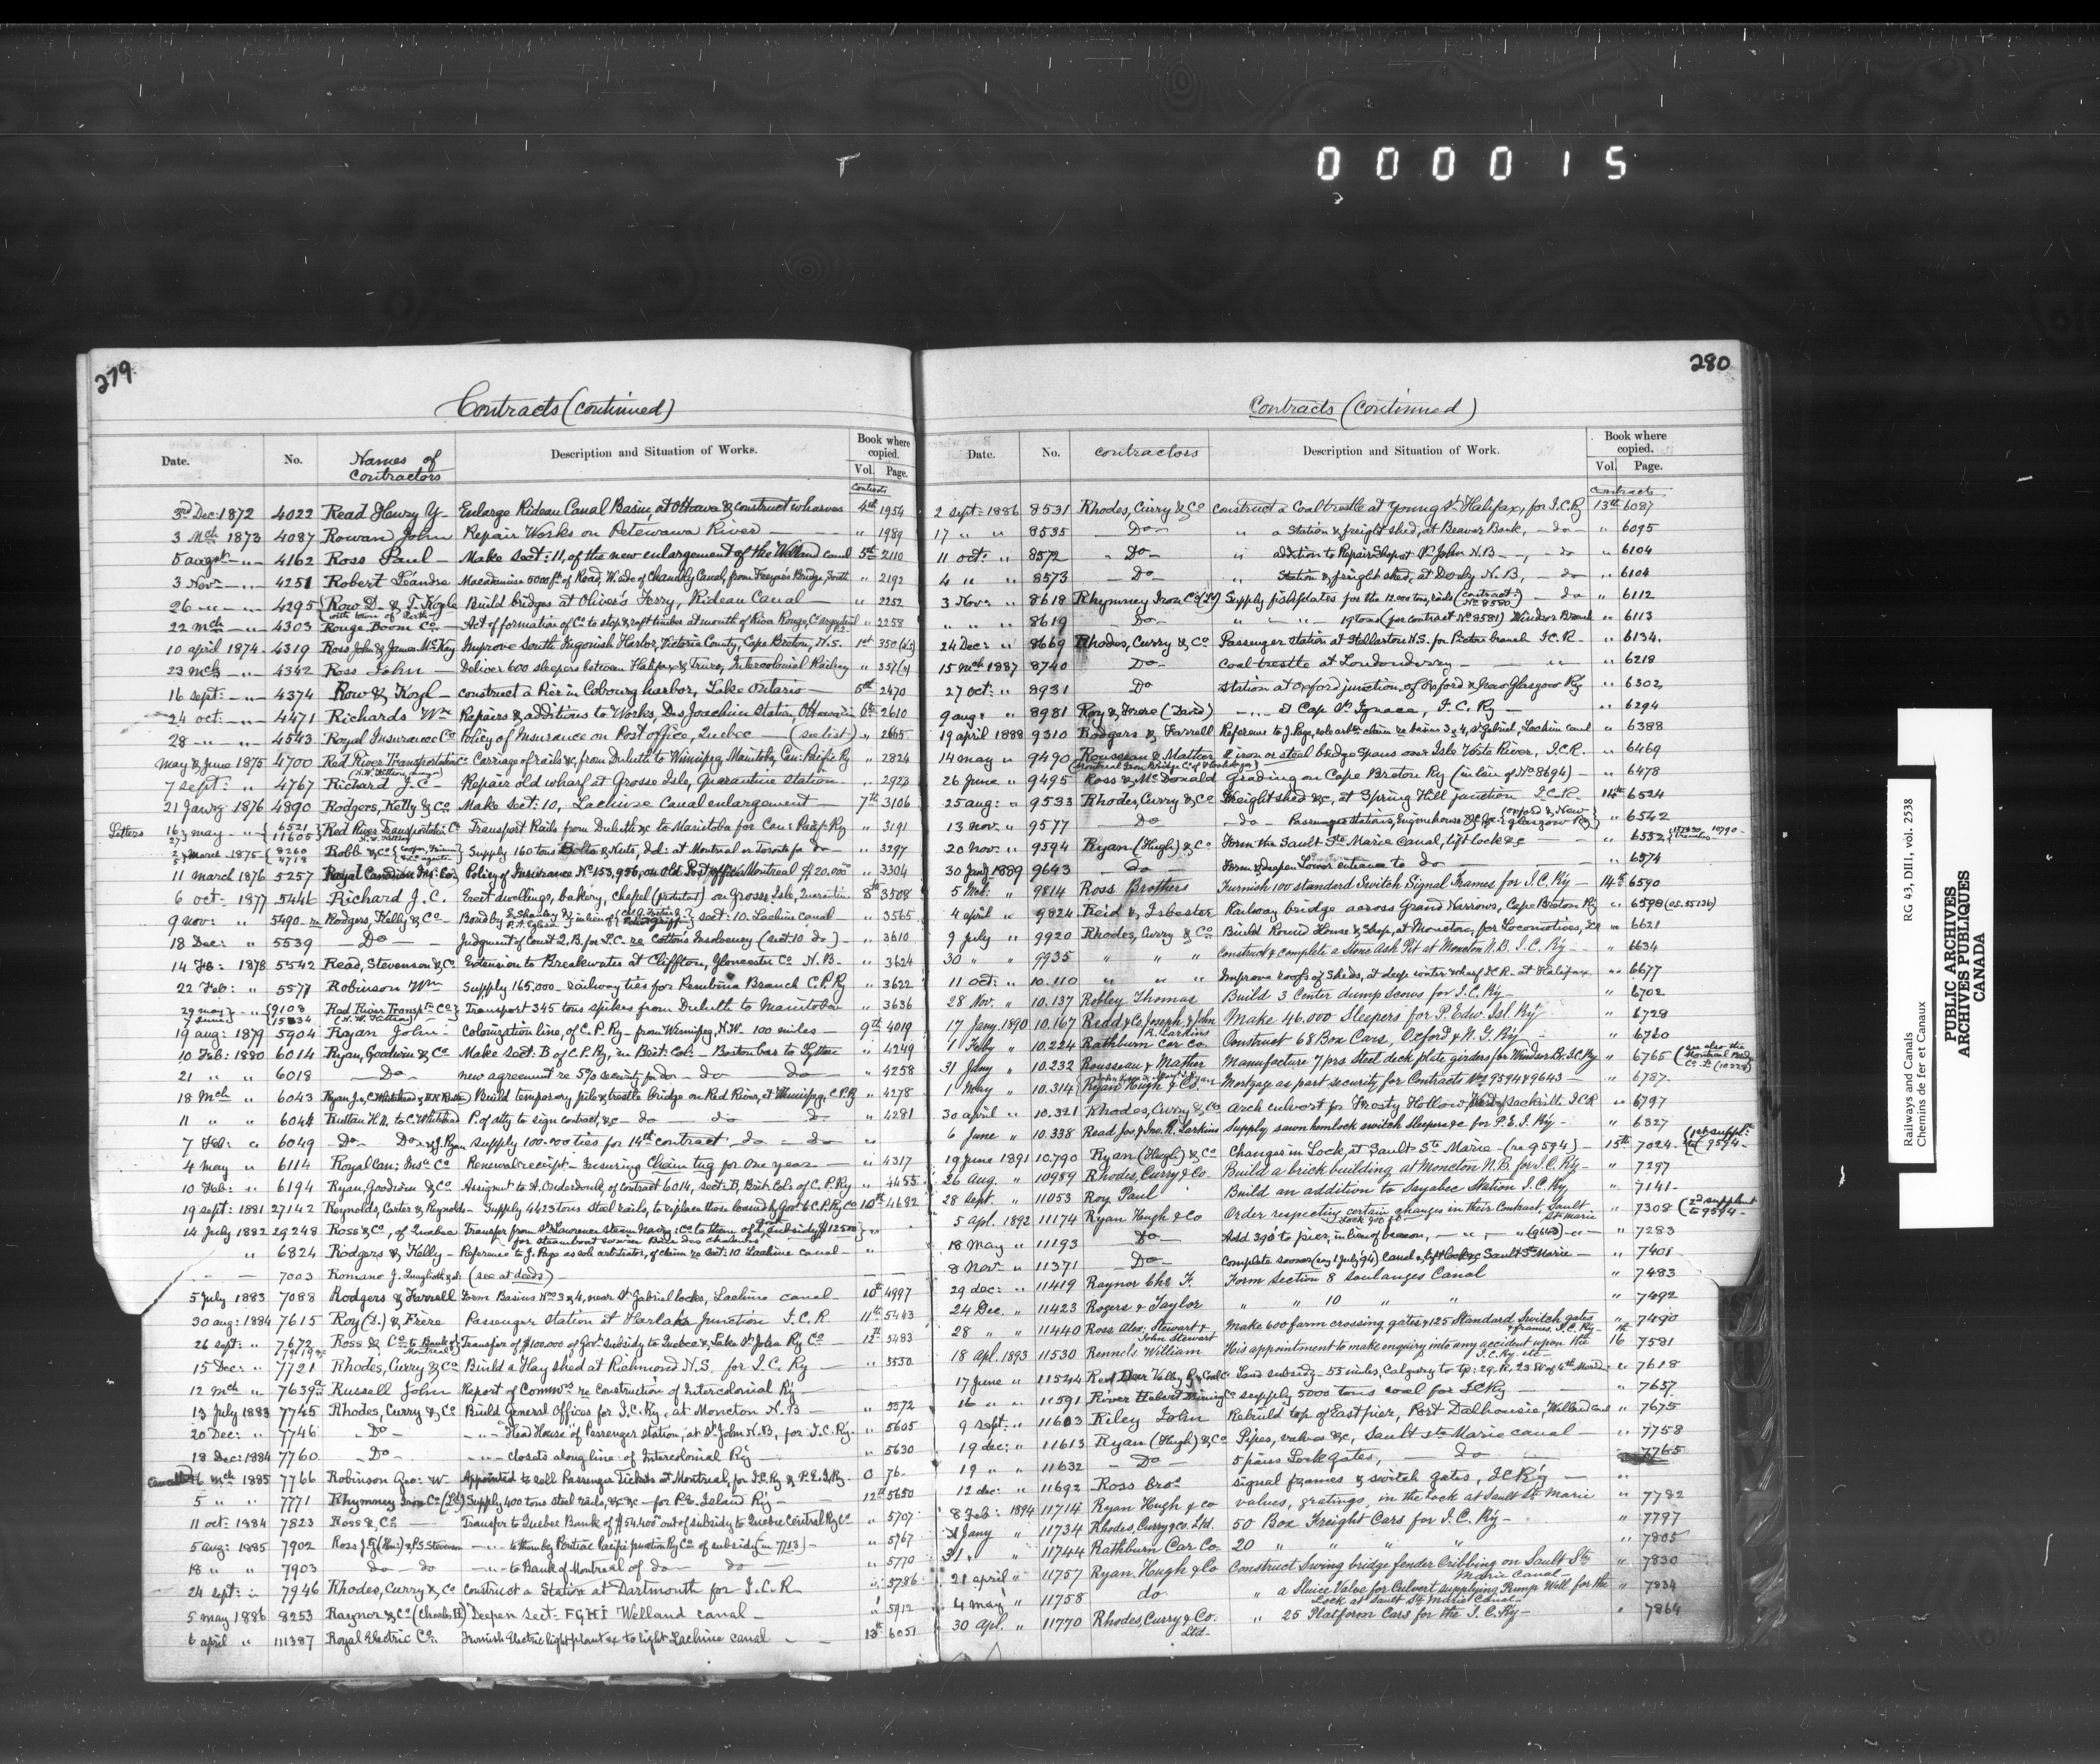 000015
279
Contracts (continued)
Date. No. Names of contractors Description and Situation of Works. Book where copied. Vol. Page.
Contracts
3rd Dec: 1872 4022 Read Henry Y Enlarge Rideau Canal Basin, at Ottawa & construct wharves 4th 1954
3 Mch 1873 4087 Rowan John Repair Works on Petewawa River " 1989
5 augst " 4162 Ross Paul Make Sect: 11, of the new enlargement of the Welland canal 5th 2110
3 Novr " 4251 Robert Léandre Macadamise 5000 ft of Road, W. side of Chambly Canal, from Bridge, South " 2192
26 " " 4295 Row D. & T. Kogle (with town of Perth) Build bridges at Oliver's Ferry, Rideau Canal " 2252
22 Mch " 4303 Rouge Boom Co Act of formation of Co to stop & raft timber at mouth of River Rouge, Co Argenteuil " 2258
10 april 1874 4319 Ross John & James McKay Improve South Ingonish Harbor, Victoria County, Cape Breton, N.S. 1st 350
23 Mch " 4342 Ross John Deliver 600 sleepers between Halifax & Truro, Intercolonial Railway " 357
16 sept: " 4374 Row & Kogl construct a Pier in Cobourg harbor, Lake Ontario 5th 2470
24 oct: " 4471 Richards Wm Repairs & additions to Works, Des Joachims Station, Ottawa 6th 2610
28 " " 4543 Royal Insurance Co Policy of Insurance on Post office, Quebec (see list) " 2665
May & June 1875 4700 Red River Transportation Co Carriage of rails &c, from Duluth to Winnipeg, Manitoba, Can: Pacific Ry " 2824
7 sept: " 4767 Richard J. C. Repair old wharf at Grosse Isle, Quarantine station " 2923
21 Janry 1876 4890 Rodgers, Kelly & Co Make sect: 10, Lachine Canal enlargement 7th 3106
Letters 16 27 may " 6521 11605 Red River Transportation Co Transport Rails from Duluth &c to Manitoba for Can: Pacif: Ry " 3191
2 5 March 1875 8260 4718 Robb & Co Supply 160 tons Bolts & Nuts, del: at Montreal or Toronto for do " 3297
11 March 1876 5257 Royal Canadian Ins: Co Policy of Insurance No 153,956, on Old Post office Montreal $20.000 " 3304
6 oct. 1877 5446 Richard J. C. Erect dwellings, bakery, chapel on Grosse Isle, Quarantine 8th 3508
9 nov: " 5490 Rodgers, Kelly & Co Bond by sect: 10. Lachine canal " 3565
18 Dec: " 5539 Do Judgment of Court Q.B. for P.C. re Cotton's Insolvency (sect: 10 do) " 3610
14 Fb: 1878 5542 Read, Stevenson & Co Extension to Breakwater at Cliffton, Gloucester Co N.B. " 3624
22 Feb: " 5577 Robinson Wm Supply 165.000 railway ties for Pembina Branch C.P. Ry " 3622
29 may 7 June " 9108 15834 Red River Transptn Co (N. W. Kittson) Transport 345 tons spikes from Duluth to Manitoba " 3636
19 aug: 1879 5904 Ryan John Colonization line, of C.P. Ry from Winnipeg, N.W. 100 miles 9th 4019
10 Feb: 1880 6014 Ryan, Goodwin & Co Make sect: B of C.P. Ry, in Brit: Col: Boston bar to Lytton " 4249
21 " " 6018 Do new agreement re 5% security for do do do " 4258
18 Mch " 6043 Ryan J., C. Whitehead & Build temporary pile & trestle bridge on Red River, at Winnipeg C.P. Ry " 4278
11 " " 6044 Ruttan H.N. to C. Whitehead P. of atty to sign contract, &c do do do " 4281
7 Feb: " 6049 Do Do & J. Ryan supply 100.000 ties for 14th contract, do do "
4 May " 6114 Royal Can: Insce Co Renewal receipt Insuring Chain tug for One year " 4317
10 Feb: " 6194 Ryan, Goodwin & Co Assignmt to A. Onderdonk, of contract 6014, sect: B, Brit: Col: of C.P. Ry " 4455
19 sept: 1881 27142 Reynolds, Carter & Reynolds Supply 4423 tons Steel rails, to replace those loaned by Govt to C.P. Ry Co 10th 4682
14 July 1882 29248 Ross & Co, of Quebec Transfer from St Lawrence Steam Navig: Co to them of Govt Subsidy $12500 for Steamboat service Baie des Chaleurs "
" 6824 Rodgers & Kelly Reference to J. Page as sole arbitrator, of claim re sect: 10 Lachine canal
7003 Romano J. (see at deeds)
5 July 1883 7088 Rodgers & Farrell Form Basins Nos 3 & 4, near St Gabriel locks, Lachine canal 10th 4997
30 aug: 1884 7615 Roy (D.) & Frère Passenger station at Harlaka Junction I.C.R. 11th 5443
26 sept: " 7672 Ross & Co to Bank of Montreal Transfer of $100.000 of Govt Subsidy to Quebec & Lake St John Ry Co 12th 5483
15 Dec: " 7721 Rhodes, Curry & Co Build a Hay shed at Richmond N.S. for I.C. Ry " 5530
12 Mch " 7639a Russell John Report of Commrs re Construction of Intercolonial Ry
13 July 1883 7745 Rhodes, Curry & Co Build General Offices for I.C. Ry, at Moncton N.B. " 5572
20 Dec: " 7746 Do " Head House of Passenger station, at St John N.B, for I.C. Ry. " 5605
18 Dec: 1884 7760 Do " closets along line of Intercolonial Ry " 5630
Cancelled 16 Mch 1885 7766 Robinson Geo: W Appointed to sell Passenger Tickets at Montreal, for I.C. Ry & P.E.I. Ry. 0 76
5 " " 7771 Rhymney Iron Co (Ld) Supply 400 tons Steel rails, &c &c for P.E. Island Ry 12th 5650
11 oct: 1884 7823 Ross & Co Transfer to Quebec Bank of $54.400 out of subsidy to Quebec Central Ry Co " 5707
5 aug: 1885 7902 Ross J.G. & P.S. Stevenson " to them by Pontiac Pacific Junction Ry Co of subsidy (in 7713) " 5767
18 " " 7903 do do " to Bank of Montreal of do do " 5770
24 sept: " 7946 Rhodes, Curry & Co Construct a Station at Dartmouth for I.C.R. " 5786
5 may 1886 8253 Raynor & Co (Charles H) Deepen sect: FGHI Welland canal " 5912
6 april " 111387 Royal Electric Co. Furnish Electric light plant &c to light Lachine canal 13th 6051
280
Contracts (continued)
Date. No. contractors Description and Situation of Work. Book where copied. Vol. Page.
contracts
2 sept: 1886 8531 Rhodes, Curry & Co construct a Coal trestle at Young St Halifax, for I.C.Ry 13th 6087
17 " " 8535 Do " a Station & freight shed, at Beaver Bank, do " 6095
11 oct: " 8572 Do " addition to Repair Shop at St John N.B., do " 6104
4 " " 8573 Do " Station & freight shed, at Derby N.B, do " 6104
3 Nov: " 8618 Rhymney Iron Co (Ld) Supply fishplates for the 12.000 tons, rails (contract: No 8580) do " 6112
" " " 8619 Do " " 19 tons (for contract No 8581) Windsor Branch " 6113
24 Dec: " 8669 Rhodes, Curry & Co Passenger station at Stellarton N.S. for Pictou branch I.C.R. " 6134
15 Mch 1887 8740 Do coal trestle at Londonderry " " 6218
27 oct: " 8931 Do station at Oxford junction, of Oxford & New Glasgow Ry " 6302
9 aug: " 8981 Roy & Frère (David) " at Cap St Ignace, I.C. Ry " 6294
19 april 1888 9310 Rodgers & Farrell Reference to J. Page, sole arbtr: claim re basins 3 & 4, St Gabriel, Lachine canal " 6388
14 may " 9490 Rousseau & Mather 2 iron or steel bridge spans over Isle Verte River, I.C.R. " 6469
26 June " 9495 Ross & McDonald grading on Cape Breton Ry (in lieu of No 8694) " 6478
25 aug: " 9533 Rhodes, Curry & Co Freight shed &c, at Spring Hill junction I.C.R. 14th 6524
13 Nov. " 9577 Do do Passenger stations, Enginehouse &c (Oxford & New Glasgow Ry) " 6542
20 Nov: " 9594 Ryan (Hugh) & Co Form the Sault Ste Marie Canal, lift lock &c " 6552
30 Jany 1889 9643 do Form & deepen Lower entrance to do " 6574
5 Mch: " 9814 Ross Brothers Furnish 100 standard Switch Signal Frames for I.C. Ry 14th 6590
4 april " 9824 Reid & Isbester Railway bridge across Grand Narrows, Cape Breton Ry " 6598
9 July " 9920 Rhodes, Curry & Co Build Round House & Shop, at Moncton, for Locomotives, ICR " 6621
30 " " 9935 " " " Construct & complete a Stone Ash Pit at Moncton N.B. I.C. Ry " 6634
11 oct: " 10.110 " " " Improve roofs of Sheds, at deep water wharf I.C.R. at Halifax " 6677
28 Nov. " 10.137 Robley Thomas Build 3 Center dump Scows for I.C. Ry " 6702
17 Jany 1890 10.167 Read & Co, Joseph, & John R. Larkins Make 46.000 Sleepers for P. Edw. Isl. Ry " 6729
1 Feby " 10.224 Rathburn Car Co. Construct 68 Box Cars, Oxford & N.G. Ry " 6760
31 Jany " 10.232 Rousseau & Mather Manufacture 7 prs Steel deck plate girders for Windsor Br. I.C. Ry " 6765 (see also the Montreal Bridge Co
1 May " 10.314 Ryan Hugh & Co. Mortgage as part security for Contracts Nos 9594 & 9643 " 6787
30 april " 10.321 Rhodes, Curry & Co Arch culvert for Frosty Hollow, West of Sackville ICR " 6797
6 June " 10.338 Read Jos. & Jno. R. Larkins Supply sawn hemlock switch Sleepers &c for P.E.I. Ry " 6327
19 June 1891 10.790 Ryan (Hugh) & Co Changes in Lock, at Sault Ste Marie (re 9594) 15th 7024 (1st supplt to 9594
26 Aug. " 10989 Rhodes, Curry & Co. Build a brick building at Moncton N.B. for I.C. Ry " 7297
28 Sept. " 11053 Roy Paul Build an addition to Sayabec Station I.C. Ry " 7141
5 Apl. 1892 11174 Ryan Hugh & Co Order respecting certain changes in their Contract, Sault Ste Marie " 7308 (2nd supplmt to 9594
18 May " 11193 Do Add 390' to pier, in lieu of beacon, " 7283
8 Novr " 11371 Do Complete sooner (say 1 July '94) Canal & lift lock &c Sault Ste Marie " 7401
29 dec: " 11419 Raynor Chs F. Form Section 8 Soulanges Canal " 7483
24 Dec. " 11423 Rogers & Taylor " " 10 " " " 7492
28 " " 11440 Ross Alex: Stewart & John Stewart Make 600 farm crossing gates & 125 Standard Switch gates & frames I.C. Ry " 7490
18 Apl. 1893 11530 Rennels William His appointment to make enquiry into any accident upon the I.C. Ry. etc 16th 7581
17 June " 11544 Red Deer Valley Ry & Coal Co Land subsidy 55 miles, Calgary to tp: 29. R. 23 W of 4th Merid: " 7618
16 " " 11591 River Hebert Mining Co supply 5000 tons coal for ICRy " 7657
9 sept: " 11603 Riley John Rebuild top of East pier, Port Dalhousie, Welland Canal " 7675
19 dec: " 11613 Ryan (Hugh) & Co Pipes, valves &c, Sault Ste Marie canal " 7758
19 " " 11632 Do 5 pairs Lock gates, do 7765
12 dec: " 11692 Ross Bros signal frames & switch gates, ICRy "
8 Feb: 1894 11714 Ryan Hugh & Co valves, gratings, in the Lock at Sault St. Marie " 7782
Jany " 11734 Rhodes, Curry & Co. Ltd. 50 Box Freight Cars for I.C. Ry " 7797
31 " 11744 Rathburn Car Co. 20 " " " " " 7805
21 april " 11757 Ryan Hugh & Co Construct Swing bridge fender Cribbing on Sault Ste Marie Canal " 7830
4 may " 11758 do " a Sluice Valve for Culvert supplying Pump Well for the Lock at Sault Ste Marie Canal " 7834
30 Apl. " 11770 Rhodes, Curry & Co. Ltd. " 25 Platform Cars for the I.C. Ry " 7864
Railways and Canals RG 43, DIII, vol. 2538
Chemins de fer et Canaux
PUBLIC ARCHIVES
ARCHIVES PUBLIQUES
CANADA